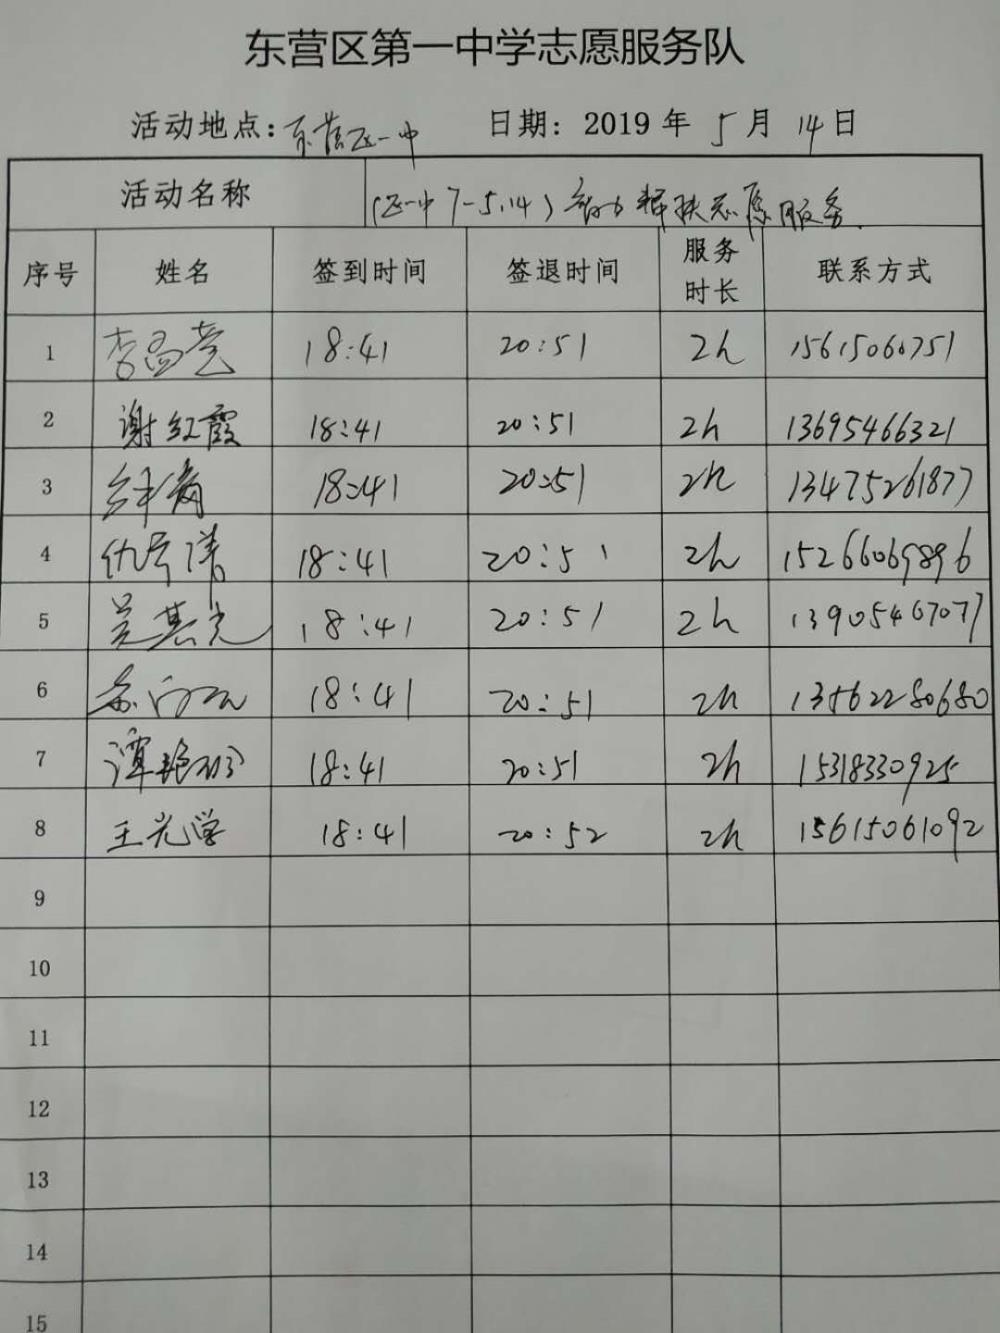 东营区第一中学志愿服务队
活动地点:东营区一中 日期: 2019 年 5 月 14 日
活动名称 (区一中7-5.14) 帮扶志愿服务.
序号 姓名 签到时间 签退时间 服务时长 联系方式
1 李 18:41 20:51 2h 15615060751
2 谢红霞 18:41 20:51 2h 13695466321
3 18:41 20:51 2h 13475261877
4 仇 18:41 20:51 2h 15266069896
5 吴 18:41 20:51 2h 13905467077
6 18:41 20:51 2h 13562280680
7 谭艳 18:41 20:51 2h 15318330925
8 王光学 18:41 20:52 2h 15615061092
9
10
11
12
13
14
15